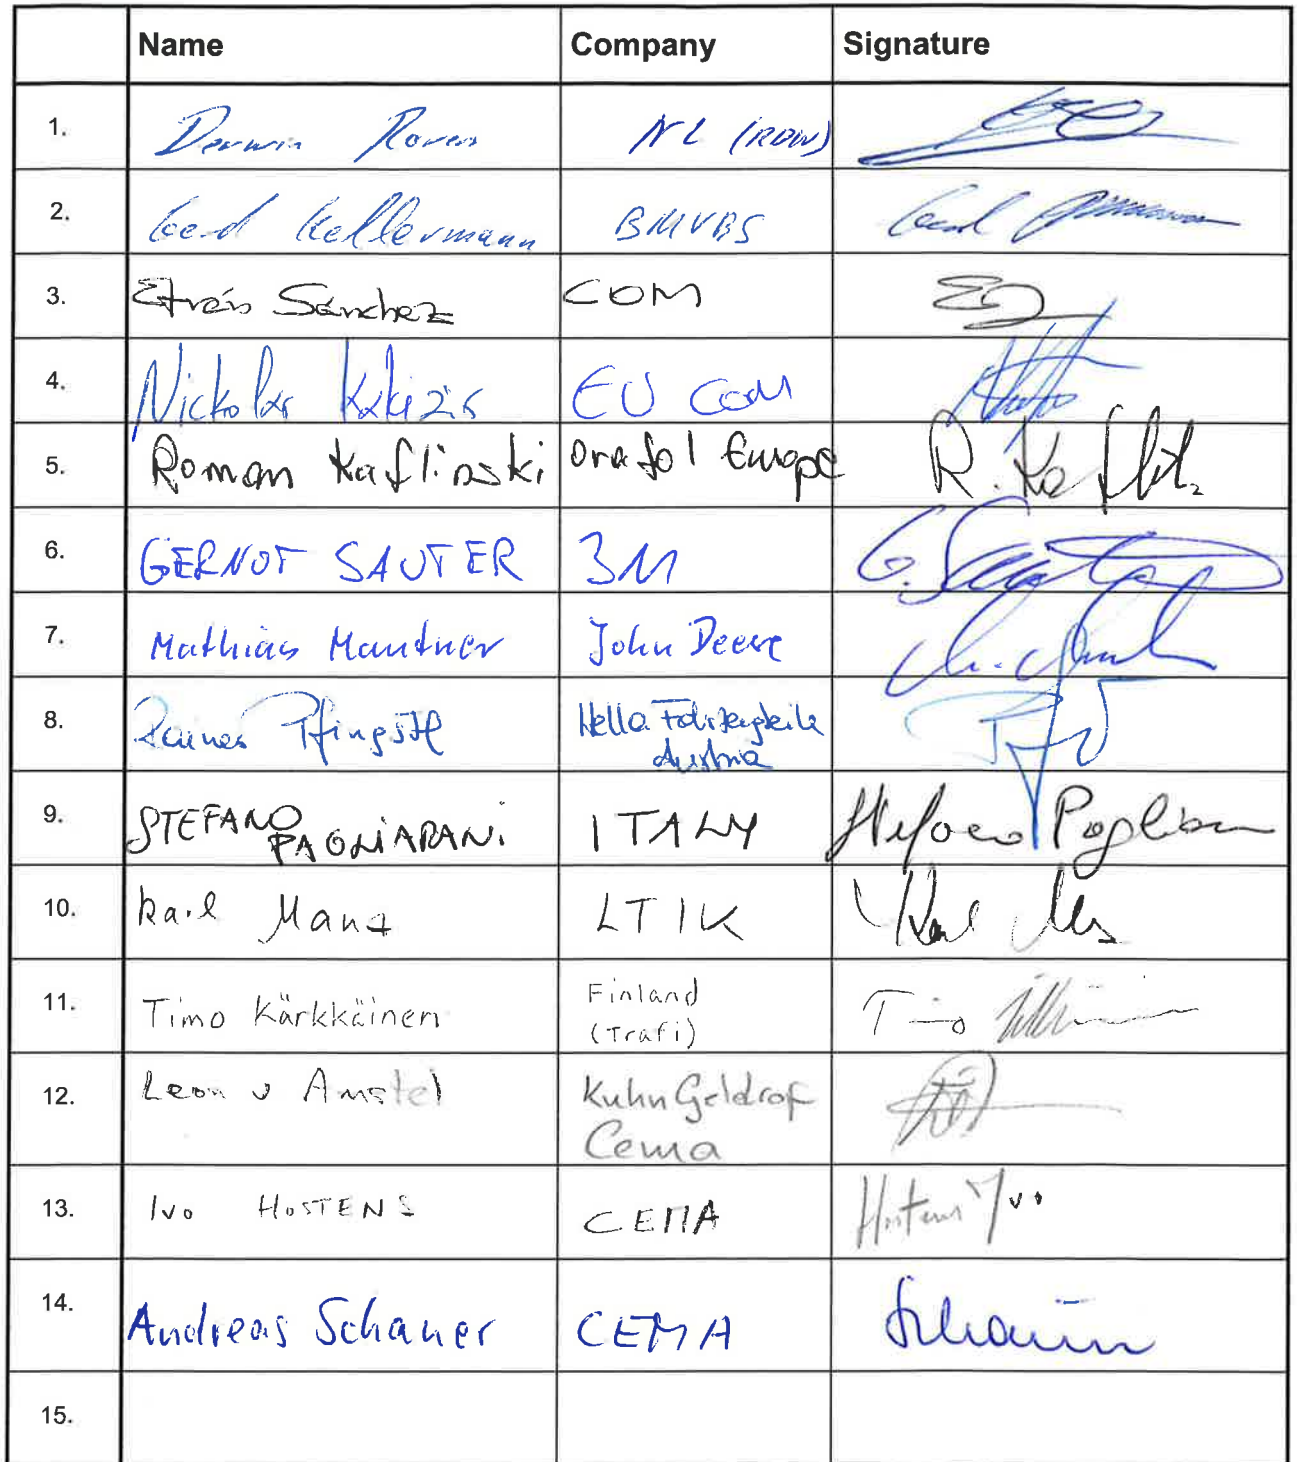 Name Company Signature
1. Derwin Rovers NL (RDW)
2. Gerd Kellermann BMVBS Gerd
3. Efrén Sánchez COM
4. Nickolas Katizis EU COM
5. Roman Kaflinski Orafol Europe R. Kaflik
6. GERNOT SAUTER 3M G. Sauter
7. Mathias Mantner John Deere
8. Rainer Pfingstl Hella Fahrzeugteile
Austria
9. STEFANO
PAGLIARANI ITALY Stefano Pagliarani
10. Karl Manz LTIK Karl
11. Timo Kärkkäinen Finland
(Trafi) Timo
12. Leon v Amstel Kuhn Geldrof
Cema
13. Ivo HOSTENS CEMA Hostens Ivo
14. Andreas Schauer CEMA Schauer
15.